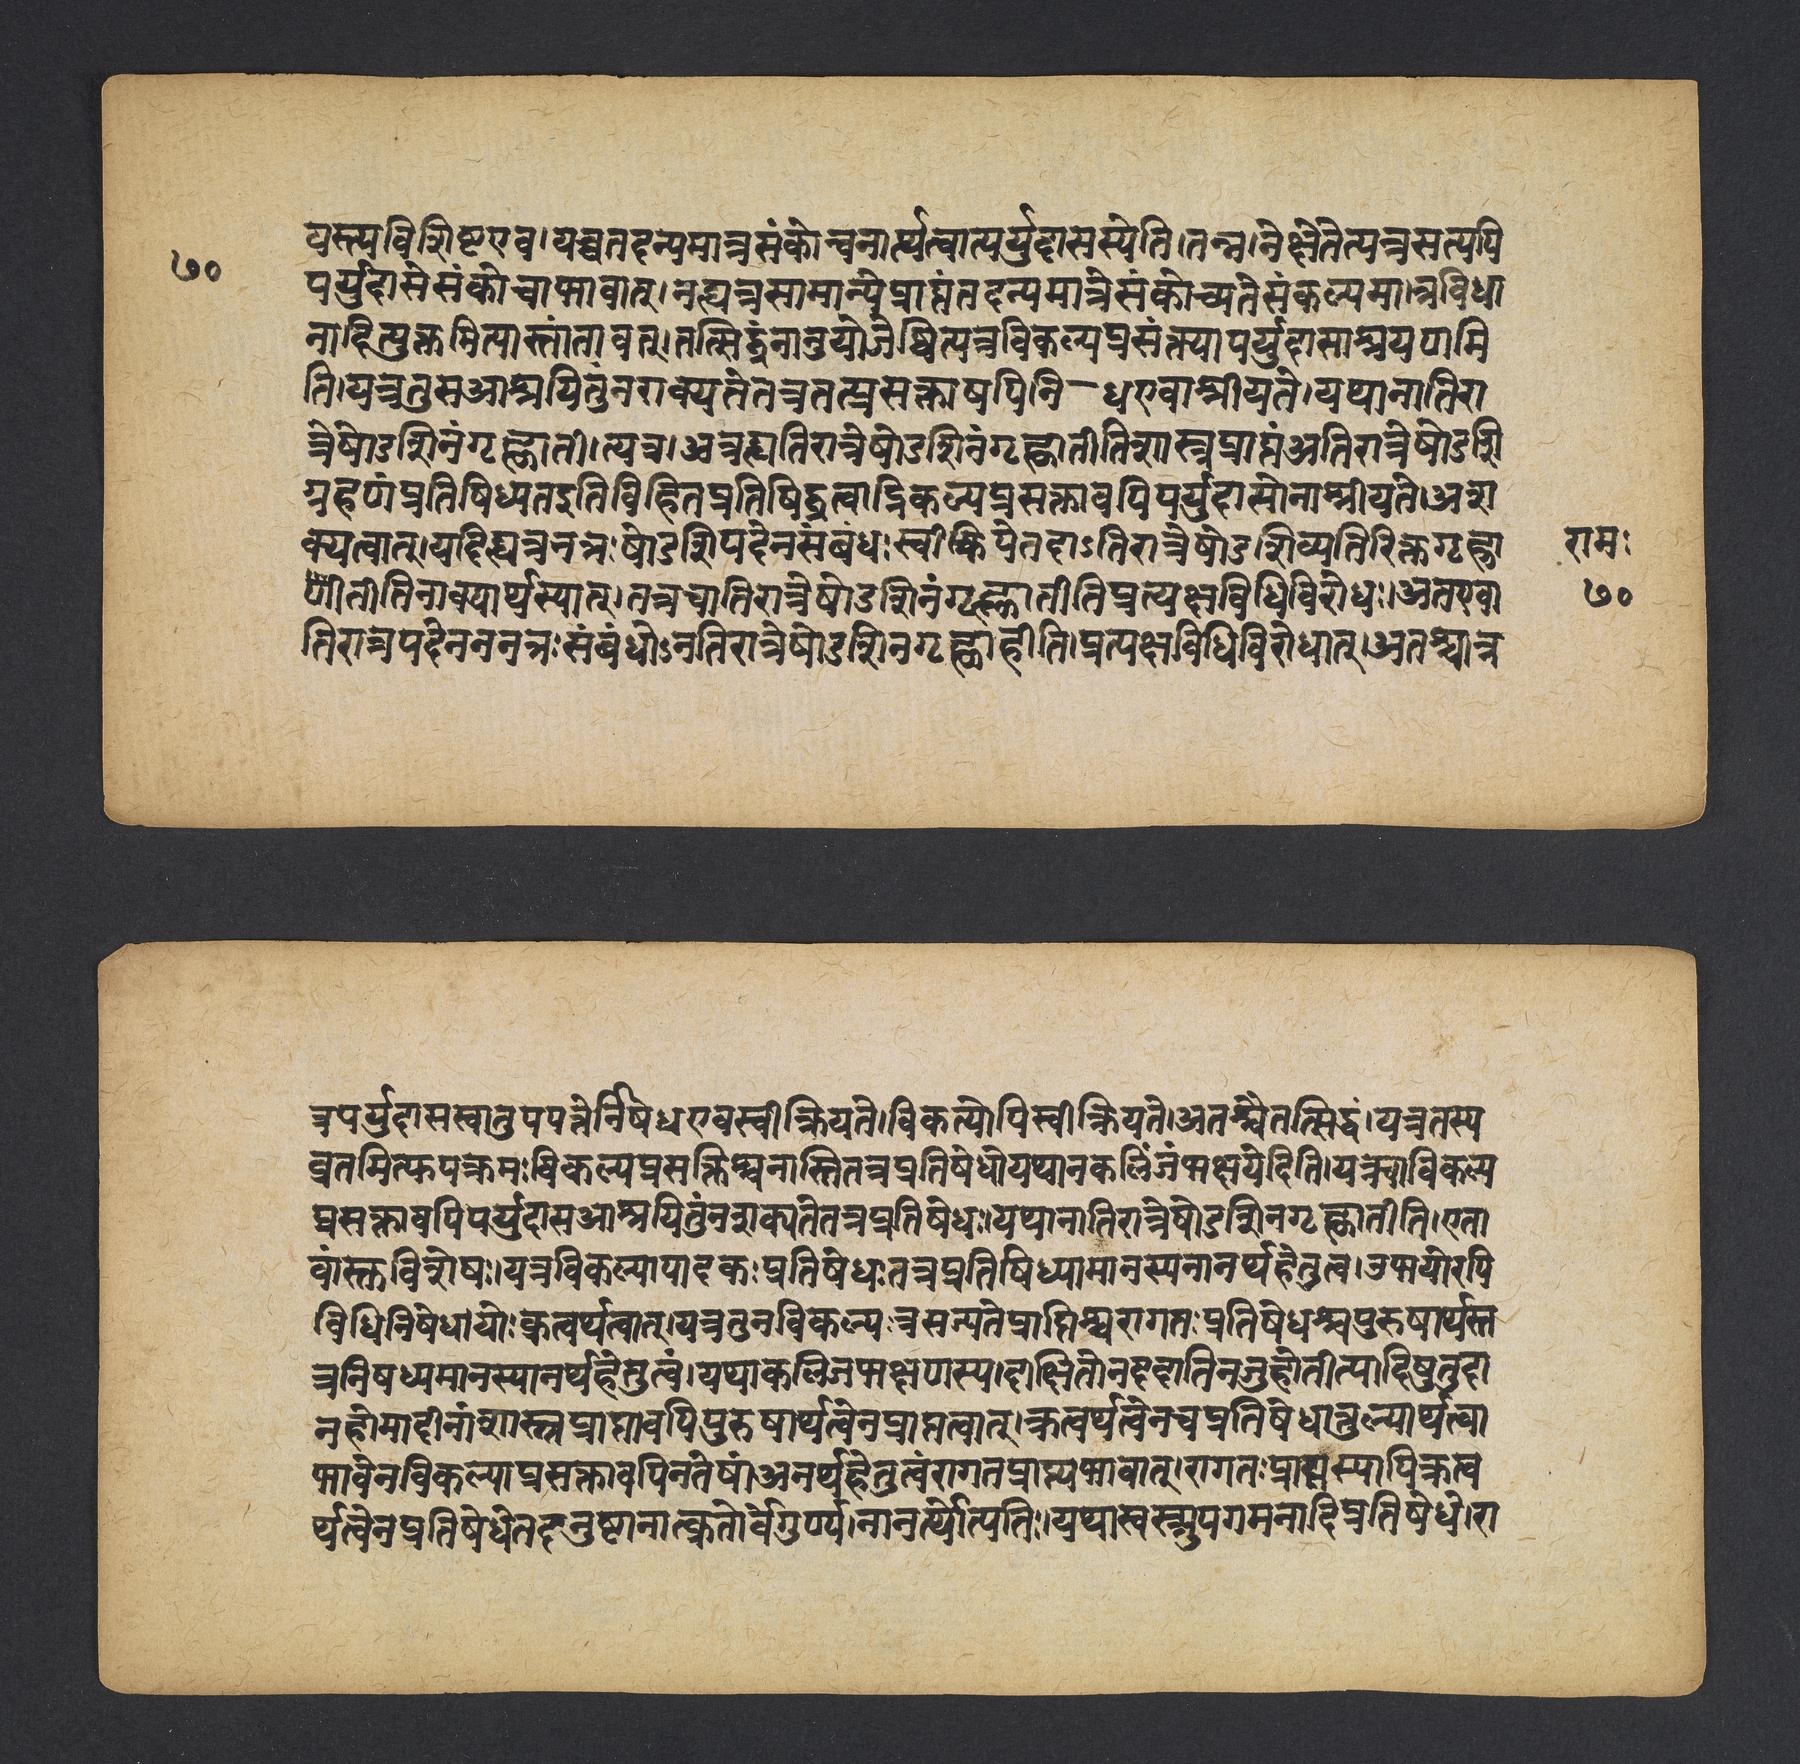 ७०
यस्त्यविशिष्टएव।यच्चतदन्यमात्रसंकोन्वनार्त्थत्वात्पर्युदासस्येति।तन्न।नेक्षेतेत्यत्रसत्यपि
पर्युदासेसंकोचाभावात्।नह्यत्रसामान्येप्राप्तंतदन्यमात्रेसंकोच्यतेसंकल्पमा।त्रविधा
नादित्युक्तमित्यास्तांतावत्।तत्सिद्धंनानुयाजेष्वित्यत्रविकल्पप्रसंक्त्यापर्युदासाश्रयणमि
ति।यत्रतुसआश्रयितुंनशक्यतेतत्रतत्प्रसक्तावपिनि—धएवाश्रीयते।यथानातिरा
त्रेषोडशिनंगृह्णाती।त्यत्र।अत्रह्यतिरात्रेषोडशिनंगृह्णातीतिशास्त्रप्राप्तंअतिरात्रेषोडशि
ग्रहणंप्रतिषिध्यतइतिविहितप्रतिषिद्धत्वाद्विकल्पप्रसक्तावपिपर्युदासोनाश्रीयते।अशा
क्यत्वात्।यदिह्यत्रनञःषोडशिपदेनसंबंधःस्वीक्रियेतदाऽतिरात्रेषोडशिव्यतिरिक्तगृह्णा
णीतीतिवाक्यार्थस्यात्।तत्रचातिरात्रेषोडशिनंगृह्णातीतिप्रत्यक्षविधिविरोधः।अतएवा
तिरात्रपदेनननञःसंबंधोऽनतिरात्रेषोडशिनगृह्णाहीति।प्रत्यक्षविधिविरोधात्।अतश्चात्र
रामः
७०
त्रपर्युदासस्वानुपपत्तेर्निषेधएवस्वीक्रियते।विकल्पोपिस्वीक्रियते।अतश्चैतत्सिद्धं।यत्रतस्य
व्रतमित्फपक्रमःविकल्पप्रसक्तिश्चनास्तितत्रप्रतिषेधोयथानकलिंजंभक्षयेदिति।यत्रचाविकल्प
प्रसक्तावपिपर्युदासआश्रयितुंनशक्यतेतत्रप्रतिषेधः।यथानातिरात्रेषोडशिनगृह्णातीति।एता
वांस्तविशेषः।यत्रविकल्पापादकःप्रतिषेधःतत्रप्रतिषिध्यामानस्यनानर्थहेतुत्व।उभयोरपि
विधिनिषेधायोःक्रत्वर्थत्वात्।यत्रतुनविकल्पःत्रसन्यतेप्राप्तिश्चरागतःप्रतिषेधश्चपुरुषार्थस्त
त्रनिषध्यमानस्यानर्थहेतुत्वं।यथाकलिजभक्षणस्य।दाक्षितोनददातिनजुहोतीत्यादिषुतुदा
नहोमादीनांशास्त्रप्राप्तावपिपुरुषार्थत्वेनप्राप्तत्वात्।क्रत्वर्थत्वेनचप्रतिषेधात्तुल्यार्थत्वा
भावेनविकल्पाप्रसक्तावपिनतेषां।अनर्थहेतुत्वंरागतप्राप्त्यभावात्।रागतःप्राप्तस्यापिक्रत्व
र्थत्वेनप्रतिषेधेतदनुष्टानात्क्रतोर्वेगुर्ण्य।नानर्त्थोत्पतिः।यथास्वस्त्र्युपगमनादिप्रतिषेधे।रा